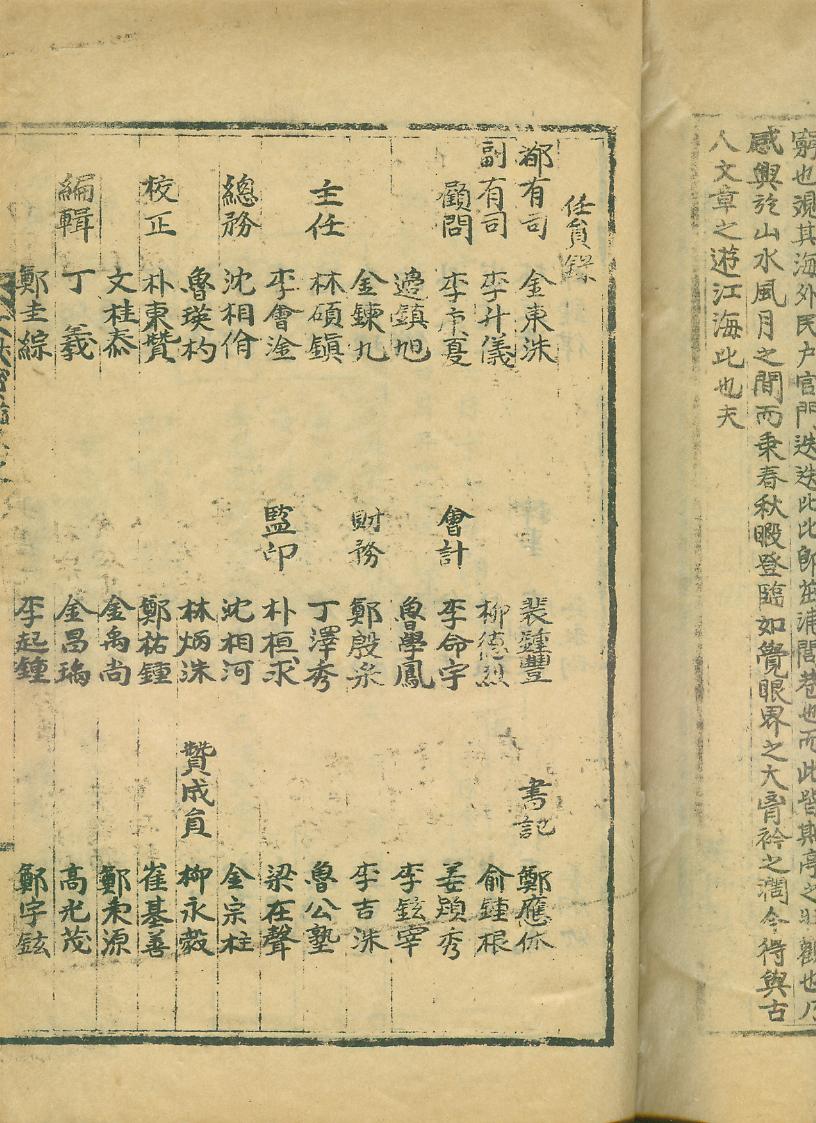 窮也覛其海外民戶官門迭迭比比卽茁浦閭巷也而此皆斯亭之壯觀也乃
感興於山水風月之間而乘春秋暇登臨如覺眼界之大胷衿之濶今得與古
人文章之遊江海此也夫
任員錄
都有司 金東洙 裴鍾豐 書記 鄭應休
副有司 李升儀 柳德烈 俞鍾根
顧問 李庚夏 會計 李命宇 姜顕秀
邊鎮旭 魯學鳳 李鉉宰
金鍊九 財務 鄭殷采 李吉洙
主任 林碩鎭 丁澤秀 魯公塾
李會淦 監印 朴桓求 梁在聲
總務 沈相佾 沈相河 金宗柱
魯瑛杓 林炳洙 贊成員 柳永毅
校正 朴東贊 鄭祐鍾 崔基善
文桂泰 金禹尚 鄭來源
編輯 丁義 金昌瑀 高光茂
鄭圭綜 李起鍾 鄭宇鉉